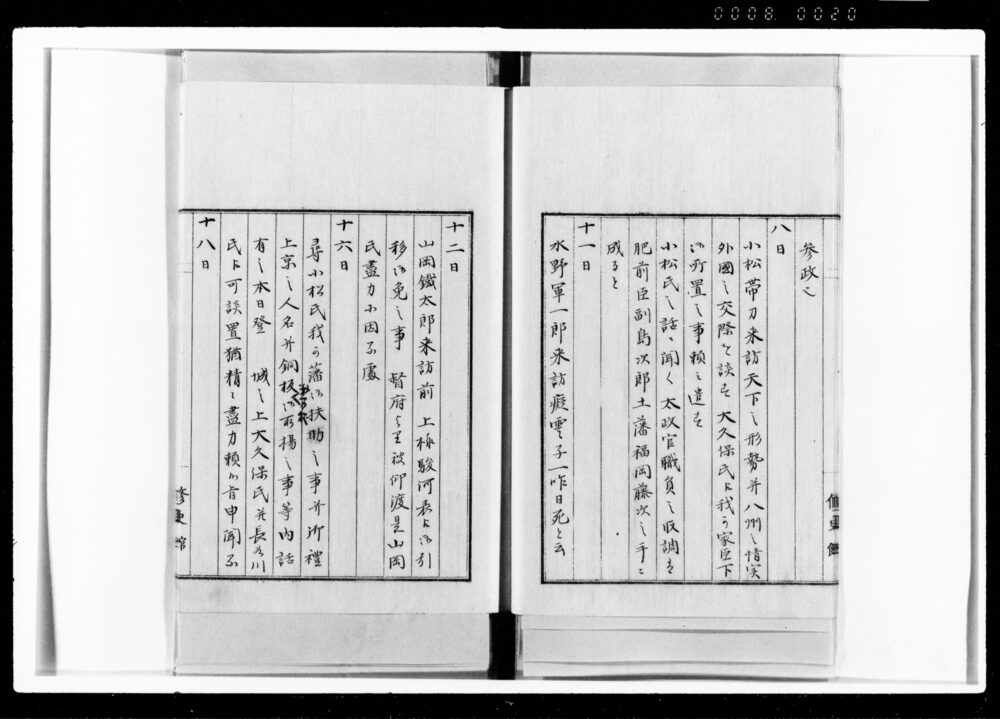 0008 0020
参政之
八日
小松帯刀来訪天下之形勢并八州之情実
外國之交際を談す大久保氏ゟ我か家臣下
所置之事頼之遣す
小松氏之話ニ聞く太政官職負之収調は
肥前臣副島次郎土藩福岡藤次之手ニ
成ると
十一日
水野軍一郎来訪癡雲子一昨日死と云
修史館
十二日
山岡鐵太郎来訪前 上様駿河表ゟ御引
移御免之事 督府ゟ被仰渡是山岡
氏盡力小因る處
十六日
尋小松氏我か藩御扶助之事并御禮
上京之人名并銅板御取揚之事等内話
有之本日登 城之上大久保氏并長谷川
氏ゟ可談置猶精々盡力頼
十八日
修史館